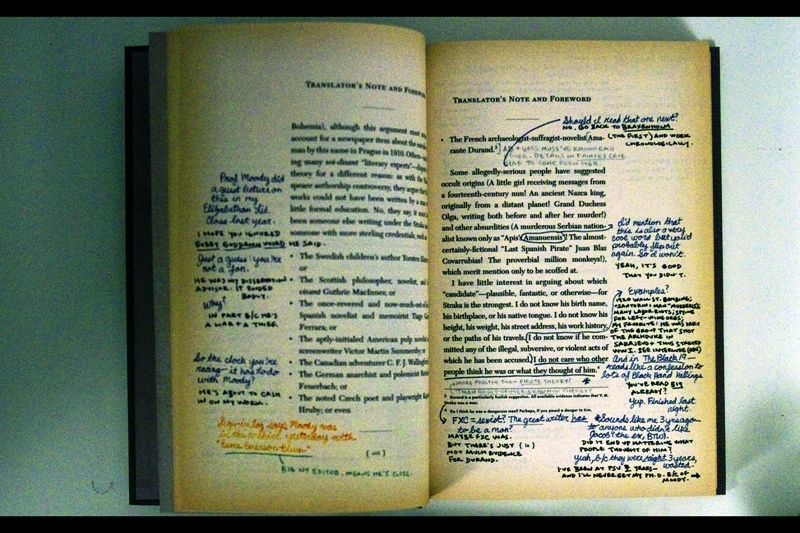 TRANSLATOR'S NOTE AND FOREW
Bohemia), although this argument must
account for a newspaper item about the
man by this name in Prague in 1910. Others
ing many soi-disant "literary experts"
theory for a different reason: as with the
speare authorship controversy, they argue
works could not have been written by a
little formal education. No, they say, it
been someone else writing under the Straka
someone with more sterling credentials,
• The Swedish children's author Torsten
or
• The Scottish philosopher, novelist,
Guthrie MacInnes; or
• The once-revered and now-much-
Spanish novelist and memoirist
Ferrara; or
• The aptly-initialed American pulp
screenwriter Victor Martin Summersby
• The Canadian adventurer C. F. J. Wallingford
• The German anarchist and polemicist
Feuerbach; or
• The noted Czech poet and playwright
Hruby; or even
Prof Moody did
a guest lecture on
this in my
Elizabethan Lit
Class last year.
I HOPE YOU IGNORED
EVERY GODDAMN WORD HE SAID.
Just a guess: you're
not a fan.
HE WAS MY DISSERTATION
ADVISOR. IT ENDED
BADLY.
Why?
IN PART B/C HE'S
A LIAR & A THIEF.
So the clock you're
racing—it has to do
with Moody?
HE'S ABOUT TO CASH
IN ON MY WORK.
Sign-in log says Moody was
yesterday with
BIG NY EDITOR. MEANS HE'S CLOSE.
TRANSLATOR'S NOTE AND FOREWORD
Should I read that one next?
NO. GO BACK TO BRAXENHOLM
(THE FIRST) AND WORK
CHRONOLOGICALLY.
• The French archaeologist-suffragist-novelist Ama-
rante Durand.
Some allegedly-serious people have suggested
occult origins (A little girl receiving messages from
a fourteenth-century nun! An ancient Nazca king,
originally from a distant planet! Grand Duchess
Olga, writing both before and after her murder!)
and other absurdities (A murderous Serbian nation-
alist known only as "Apis' Amanuensis"! The almost-
certainly-fictional "Last Spanish Pirate" Juan Blas
Covarrubias! The proverbial million monkeys!),
which merit mention only to be scoffed at.
I have little interest in arguing about which
"candidate"—plausible, fantastic, or otherwise—for
Straka is the strongest. I do not know his birth name,
his birthplace, or his native tongue. I do not know his
height, his weight, his street address, his work history,
or the paths of his travels. I do not know if he com-
mitted any of the illegal, subversive, or violent acts of
which he has been accused. I do not care who other
people think he was or what they thought of him.
did mention that
this is also a very
cool word but you'd
probably flip out
again. So I won't.
YEAH, IT'S GOOD
THAT YOU DIDN'T.
Examples?
1920 WALL ST. BOMBING;
MANY LABOR RIOTS; SPYING
FOR LEFT-WING ORGS;
MY FAVORITE: HE WAS PART
OF THE GROUP THAT SHOT
THE ARCHDUKE IN
SARAJEVO & THUS STARTED
WWI.
And in The Black 19—
reads like a confession to
lots of Black Hand killings
YOU'VE READ B19
ALREADY?
Yup. Finished last
night.
FXC = sexist? The great writer has
to be a man?
MAYBE FXC WAS.
BUT THERE'S JUST (IS)
NOT MUCH EVIDENCE
FOR DURAND.
*Sounds like me 3 yrs ago
to anyone who didn't like
Jacob (the ex, BTW).
DID IT END UP MATTERING WHAT
PEOPLE THOUGHT OF HIM?
Yeah, b/c they were right. 3 years,
wasted.
I'VE BEEN AT PSU 8 YEARS—
AND I'LL NEVER GET MY PH.D. B/C OF
MOODY. →